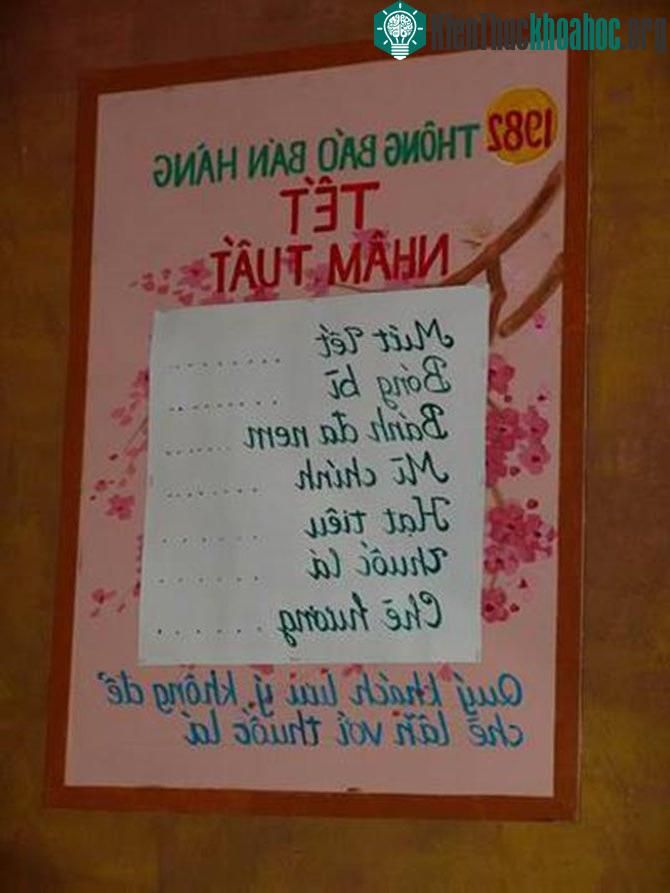 KienThuckhoahoc.org
1982 THÔNG BÁO BÁN HÀNG
TẾT
NHÂM TUẤT
Mứt Tết ........
Bóng bì ........
Bánh đa nem ......
Mì chính .......
Hạt tiêu ......
Thuốc lá ......
Chè hương ......
Quý khách lưu ý, không để
chè lẫn với thuốc lá